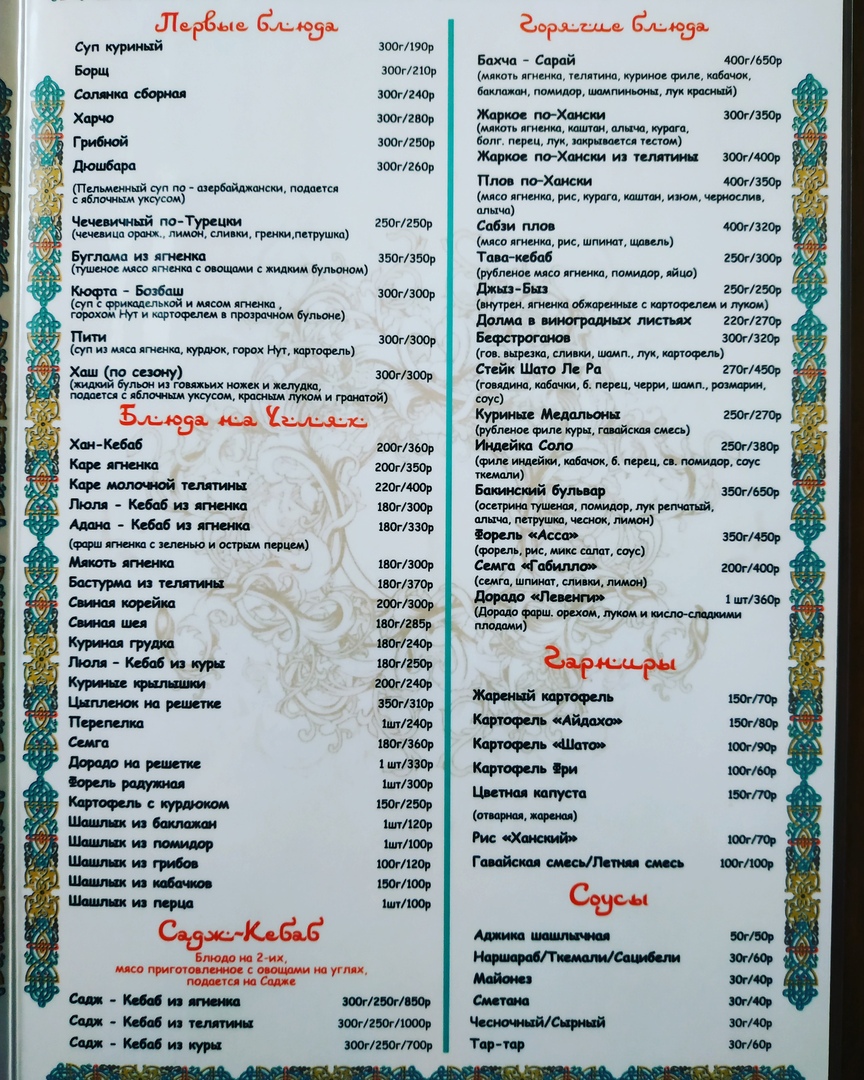 Первые блюда
Суп куриный 300г/190р
Борщ 300г/210р
Солянка сборная 300г/240р
Харчо 300г/280р
Грибной 300г/250р
Дюшбара 300г/260р
(Пельменный суп по - азербайджански, подается
с яблочным уксусом)
Чечевичный по-Турецки 250г/250р
(чечевица оранж., лимон, сливки, гренки,петрушка)
Буглама из ягненка 350г/350р
(тушеное мясо ягненка с овощами с жидким бульоном)
Кюфта - Бозбаш 300г/300р
(суп с фрикаделькой и мясом ягненка ,
горохом Нут и картофелем в прозрачном бульоне)
Пити 300г/300р
(суп из мяса ягненка, курдюк, горох Нут, картофель)
Хаш (по сезону) 300г/300р
(жидкий бульон из говяжьих ножек и желудка,
подается с яблочным уксусом, красным луком и гранатой)
Блюда на Углях
Хан-Кебаб 200г/360р
Каре ягненка 200г/350р
Каре молочной телятины 220г/400р
Люля - Кебаб из ягненка 180г/300р
Адана - Кебаб из ягненка 180г/330р
(фарш ягненка с зеленью и острым перцем)
Мякоть ягненка 180г/300р
Бастурма из телятины 180г/370р
Свиная корейка 200г/300р
Свиная шея 180г/285р
Куриная грудка 180г/240р
Люля - Кебаб из куры 180г/250р
Куриные крылышки 200г/240р
Цыпленок на решетке 350г/310р
Перепелка 1шт/240р
Семга 180г/360р
Дорадо на решетке 1 шт/330р
Форель радужная 1шт/300р
Картофель с курдюком 150г/250р
Шашлык из баклажан 1шт/120р
Шашлык из помидор 1шт/100р
Шашлык из грибов 100г/120р
Шашлык из кабачков 150г/100р
Шашлык из перца 1шт/100р
Садж-Кебаб
Блюдо на 2-их,
мясо приготовленное с овощами на углях,
подается на Садже
Садж - Кебаб из ягненка 300г/250г/850р
Садж - Кебаб из телятины 300г/250г/1000р
Садж - Кебаб из куры 300г/250г/700р
Горячие блюда
Бахча - Сарай 400г/650р
(мякоть ягненка, телятина, куриное филе, кабачок,
баклажан, помидор, шампиньоны, лук красный)
Жаркое по-Хански 300г/350р
(мякоть ягненка, каштан, алыча, курага,
болг. перец, лук, закрывается тестом)
Жаркое по-Хански из телятины 300г/400р
Плов по-Хански 400г/350р
(мясо ягненка, рис, курага, каштан, изюм, чернослив,
алыча)
Сабзи плов 400г/320р
(мясо ягненка, рис, шпинат, щавель)
Тава-кебаб 250г/300р
(рубленое мясо ягненка, помидор, яйцо)
Джыз-Быз 250г/250р
(внутрен. ягненка обжаренные с картофелем и луком)
Долма в виноградных листьях 220г/270р
Бефстроганов 300г/320р
(гов. вырезка, сливки, шамп., лук, картофель)
Стейк Шато Ле Ра 270г/450р
(говядина, кабачки, б. перец, черри, шамп., розмарин,
соус)
Куриные Медальоны 250г/270р
(рубленое филе куры, гавайская смесь)
Индейка Соло 250г/380р
(филе индейки, кабачок, б. перец, св. помидор, соус
ткемали)
Бакинский бульвар 350г/650р
(осетрина тушеная, помидор, лук репчатый,
алыча, петрушка, чеснок, лимон)
Форель «Асса» 350г/450р
(форель, рис, микс салат, соус)
Семга «Габилло» 200г/400р
(семга, шпинат, сливки, лимон)
Дорадо «Левенги» 1 шт/360р
(Дорадо фарш. орехом, луком и кисло-сладкими
плодами)
Гарниры
Жареный картофель 150г/70р
Картофель «Айдахо» 150г/80р
Картофель «Шато» 100г/90р
Картофель Фри 100г/60р
Цветная капуста 150г/70р
(отварная, жареная)
Рис «Ханский» 100г/70р
Гавайская смесь/Летняя смесь 100г/100р
Соусы
Аджика шашлычная 50г/50р
Наршараб/Ткемали/Сацибели 30г/60р
Майонез 30г/40р
Сметана 30г/40р
Чесночный/Сырный 30г/40р
Тар-тар 30г/60р